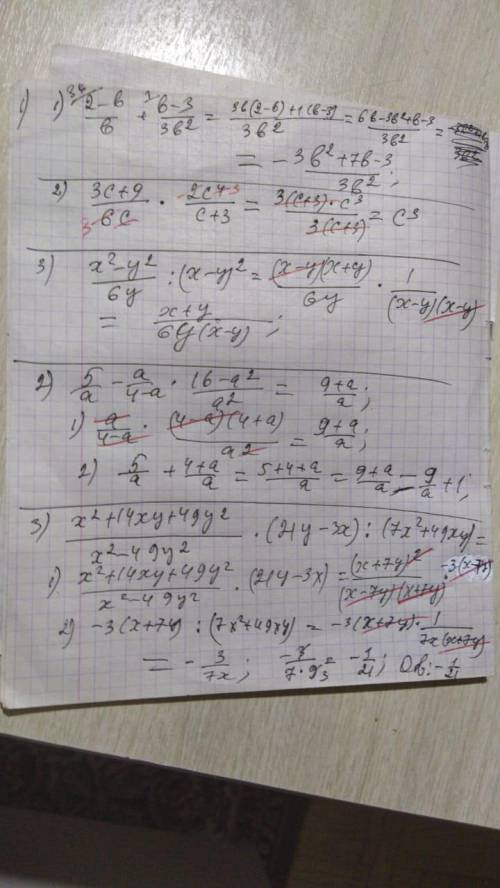 1) 1) (2-b)/b + (b-3)/3b² = (3b(2-b)+1(b-3))/3b² = (6b-3b²+b-3)/3b² =
= (-3b²+7b-3)/3b²;
2) (3c+9)/6c · 2c⁴/(c+3) = (3(c+3)·c³)/(3(c+3)) = c³
3) (x²-y²)/6y : (x-y)² = ((x-y)(x+y))/6y · 1/((x-y)(x-y))
= (x+y)/(6y(x-y));
2) 5/a - a/(4-a) · (16-a²)/a² = (9+a)/a;
1) a/(4-a) · ((4-a)(4+a))/a² = (9+a)/a;
2) 5/a + (4+a)/a = (5+4+a)/a = (9+a)/a = 9/a + 1;
3) (x²+14xy+49y²)/(x²-49y²) · (21y-3x) : (7x²+49xy) =
1) (x²+14xy+49y²)/(x²-49y²) · (21y-3x) = (x+7y)²/((x-7y)(x+7y)) · -3(x-7y)
2) -3(x+7y) : (7x²+49xy) = -3(x+7y) · 1/(7x(x+7y))
= - 3/7x; -3/(7·9) = -1/21; Отв: -1/21